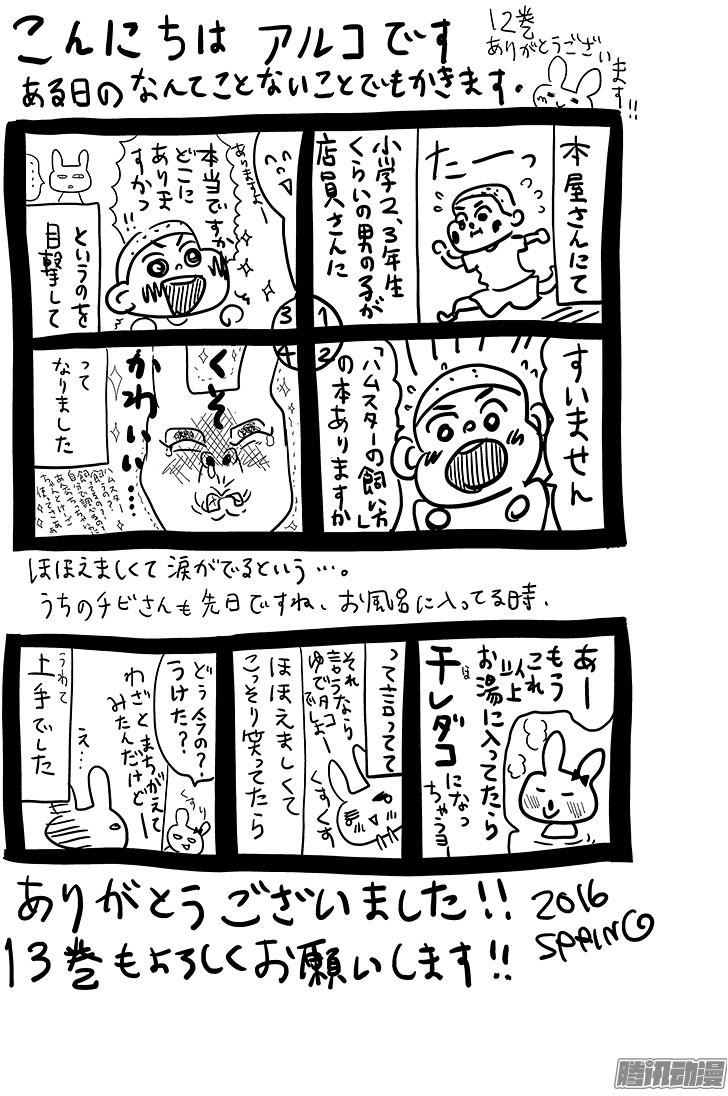 こんにちは アルコです
12巻
ありがとうございます!!
ある日のなんてことないことでもかきます.
本屋さんにて
たーっ
小学2、3年生
くらいの男の子が
店員さんに
1
すいません
「ハムスターの飼い方」
の本ありますか
2
ありますよー
本当ですか
どこに
ありま
すかっ
というのを
目撃して
3
4
くそ
かわいい…
って
なりました
ハムスター
飼うの?
ほほえましくて涙がでるという…。
うちのチビさんも先日ですね、お風呂に入ってる時、
あー
もう
これ
以上
お湯に入ってたら
干しダコ
ほ
になっ
ちゃうョ
って言ってて
それ
言うなら
ゆでダコ
でしょー
くすくす
ほほえましくて
こっそり笑ってたら
どう今の?
うけた?
くすり
わざとまちがえて
みたんだけどー
え…
うわて
上手でした
ありがとうございました!!
2016
SPRING
13巻もよろしくお願いします!!
腾讯动漫